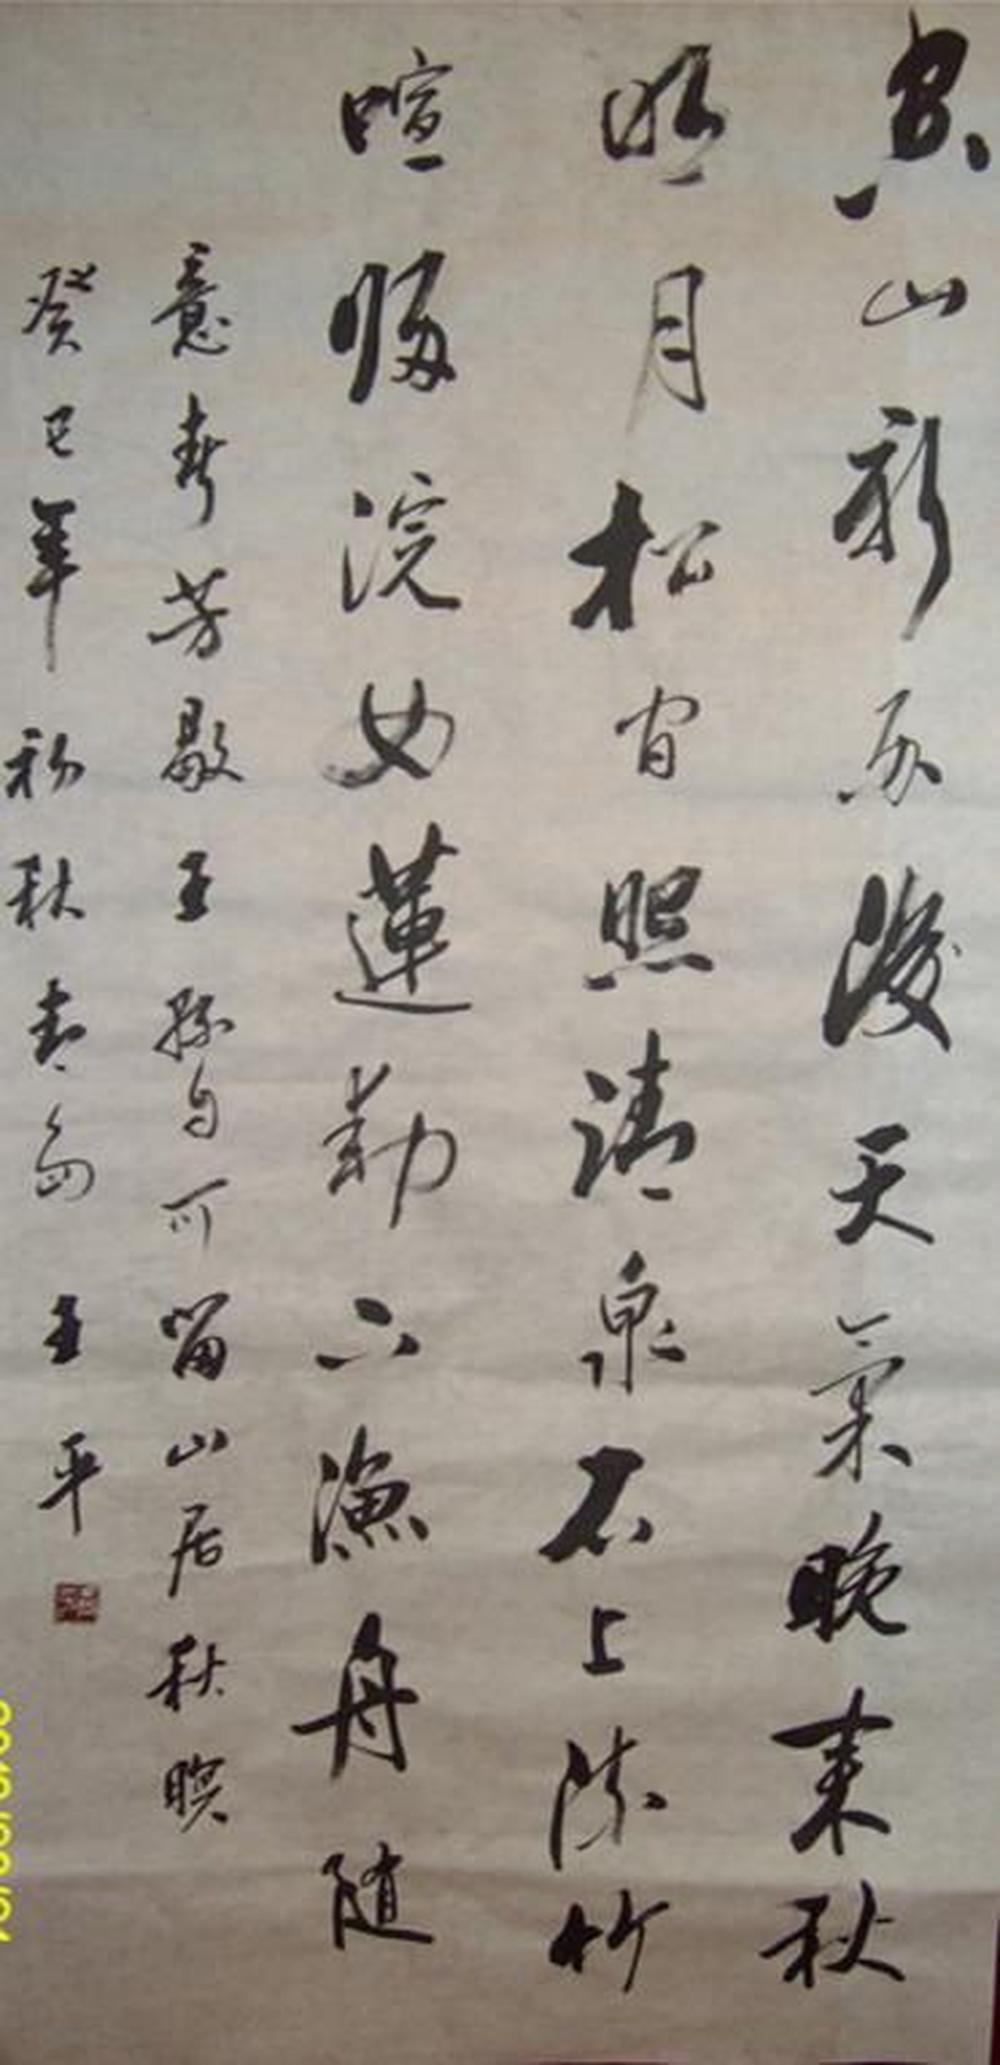 空山新雨後天氣晚来秋
明月松間照清泉石上流竹
喧歸浣女蓮動下漁舟随
意春芳歇王孫自可留山居秋暝
癸巳年初秋青島王平